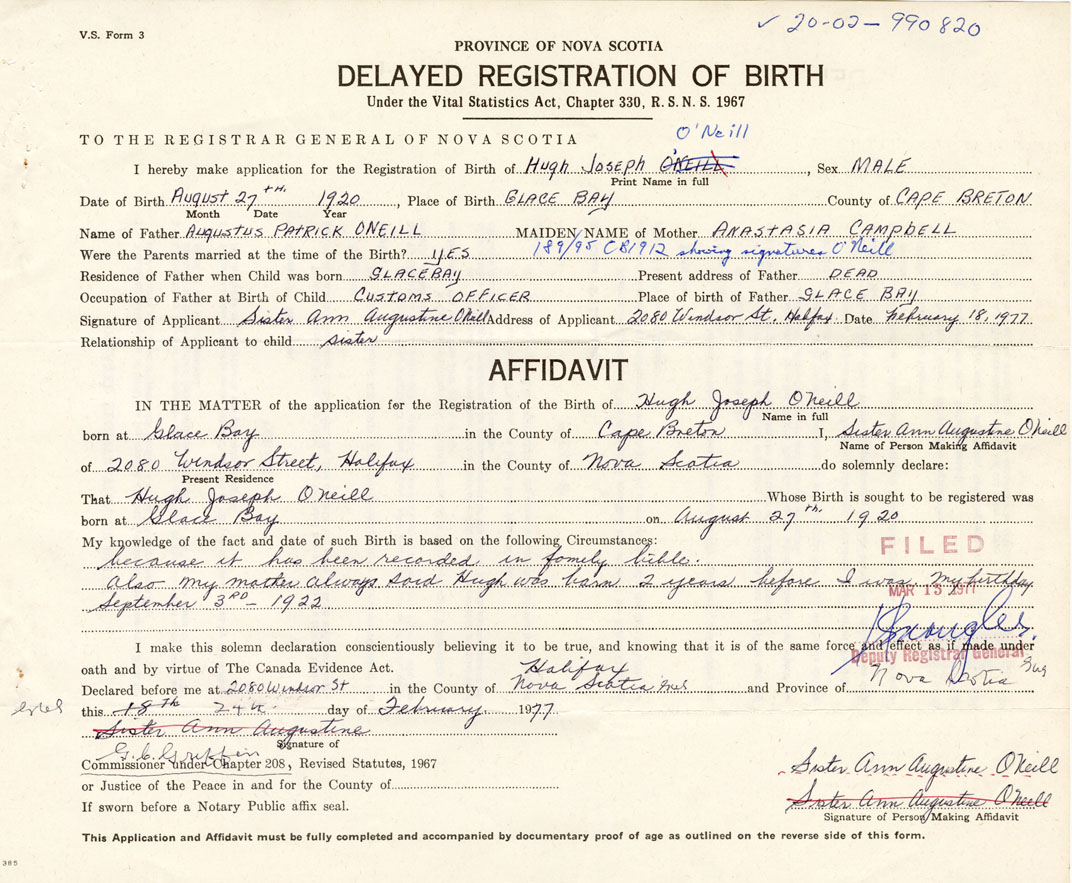 V.S. Form 3
✓ 20-02-990820
PROVINCE OF NOVA SCOTIA
DELAYED REGISTRATION OF BIRTH
Under the Vital Statistics Act, Chapter 330, R. S. N. S. 1967
TO THE REGISTRAR GENERAL OF NOVA SCOTIA
O'Neill
I hereby make application for the Registration of Birth of Hugh Joseph O'NEILL, Sex MALE
Print Name in full
Date of Birth August 27TH. 1920, Place of Birth GLACE BAY County of CAPE BRETON
Month Date Year
Name of Father AUGUSTUS PATRICK ONEILL MAIDEN NAME of Mother ANASTASIA CAMPBELL
Were the Parents married at the time of the Birth? YES 189/95 CB1912 showing signatures O'Neill
Residence of Father when Child was born GLACE BAY Present address of Father DEAD
Occupation of Father at Birth of Child CUSTOMS OFFICER Place of birth of Father GLACE BAY
Signature of Applicant Sister Ann Augustine ONeill Address of Applicant 2080 Windsor St. Halifax. Date February 18, 1977
Relationship of Applicant to child sister
AFFIDAVIT
IN THE MATTER of the application for the Registration of the Birth of Hugh Joseph ONeill
Name in full
born at Glace Bay in the County of Cape Breton I, Sister Ann Augustine ONeill
Name of Person Making Affidavit
of 2080 Windsor Street, Halifax in the County of Nova Scotia do solemnly declare:
Present Residence
That Hugh Joseph ONeill Whose Birth is sought to be registered was
born at Glace Bay on August 27th. 1920
My knowledge of the fact and date of such Birth is based on the following Circumstances:
because it has been recorded in family bible.
FILED
Also my mother always said Hugh was born 2 years before I was. My birthday
MAR 15 1977
September 3RD - 1922
I make this solemn declaration conscientiously believing it to be true, and knowing that it is of the same force and effect as if made under
Deputy Registrar General
oath and by virtue of The Canada Evidence Act.
Halifax
Declared before me at 2080 Windsor St in the County of Nova Scotia and Province of Nova Scotia
this 18th 24th day of February 1977
Sister Ann Augustine
Signature of
G.C. Griffin
Commissioner under Chapter 208, Revised Statutes, 1967
or Justice of the Peace in and for the County of
Sister Ann Augustine O'Neill
If sworn before a Notary Public affix seal.
Sister Ann Augustine O'Neill
Signature of Person Making Affidavit
This Application and Affidavit must be fully completed and accompanied by documentary proof of age as outlined on the reverse side of this form.
385